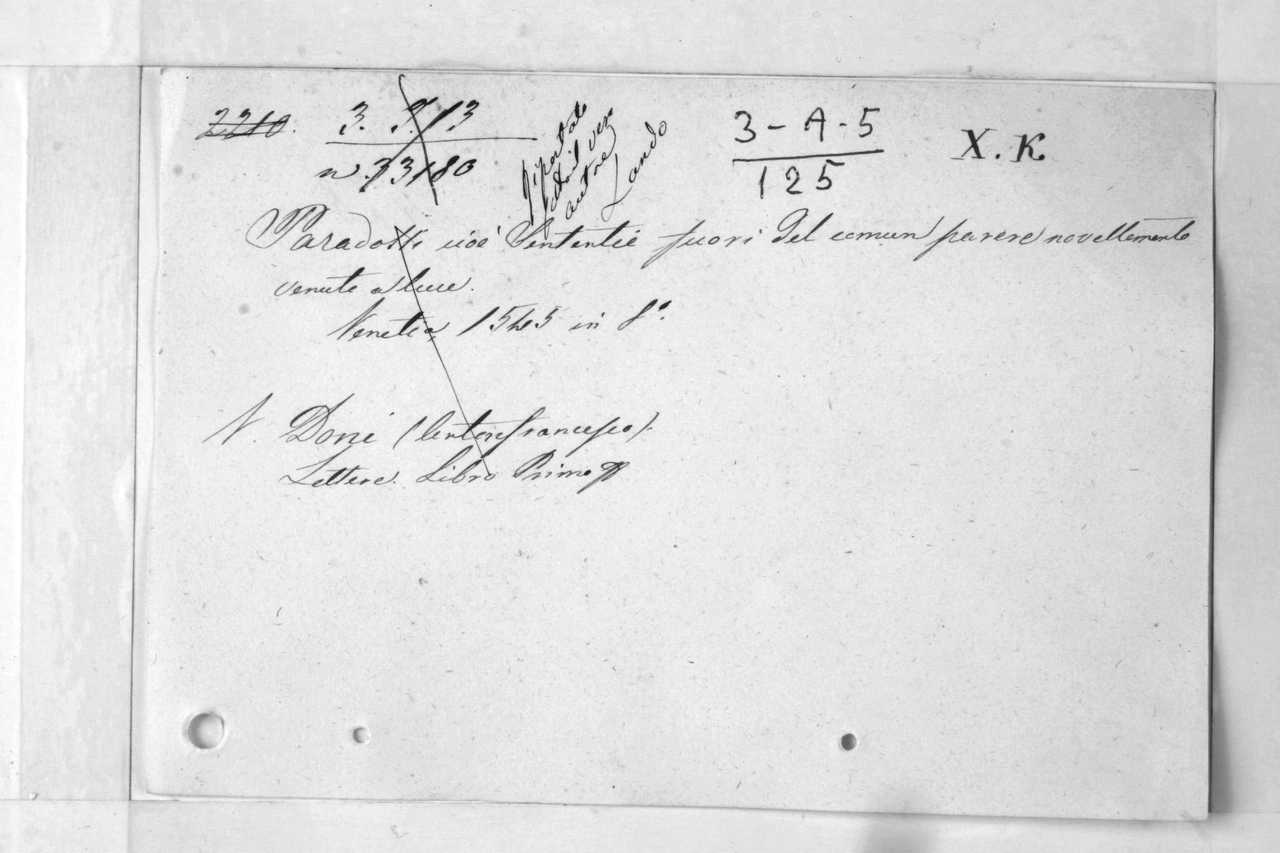 2210.
3. 3. 13
n. 33180
Riportato
sotto il vero
autore
Lando
3-A-5
125
X.K
Paradossi cioè Sententie fuori del comun parere novellamente
venute a luce.
Venetia 1545 in 8°.
V. Doni (Antonfrancesco).
Lettere. Libro Primo